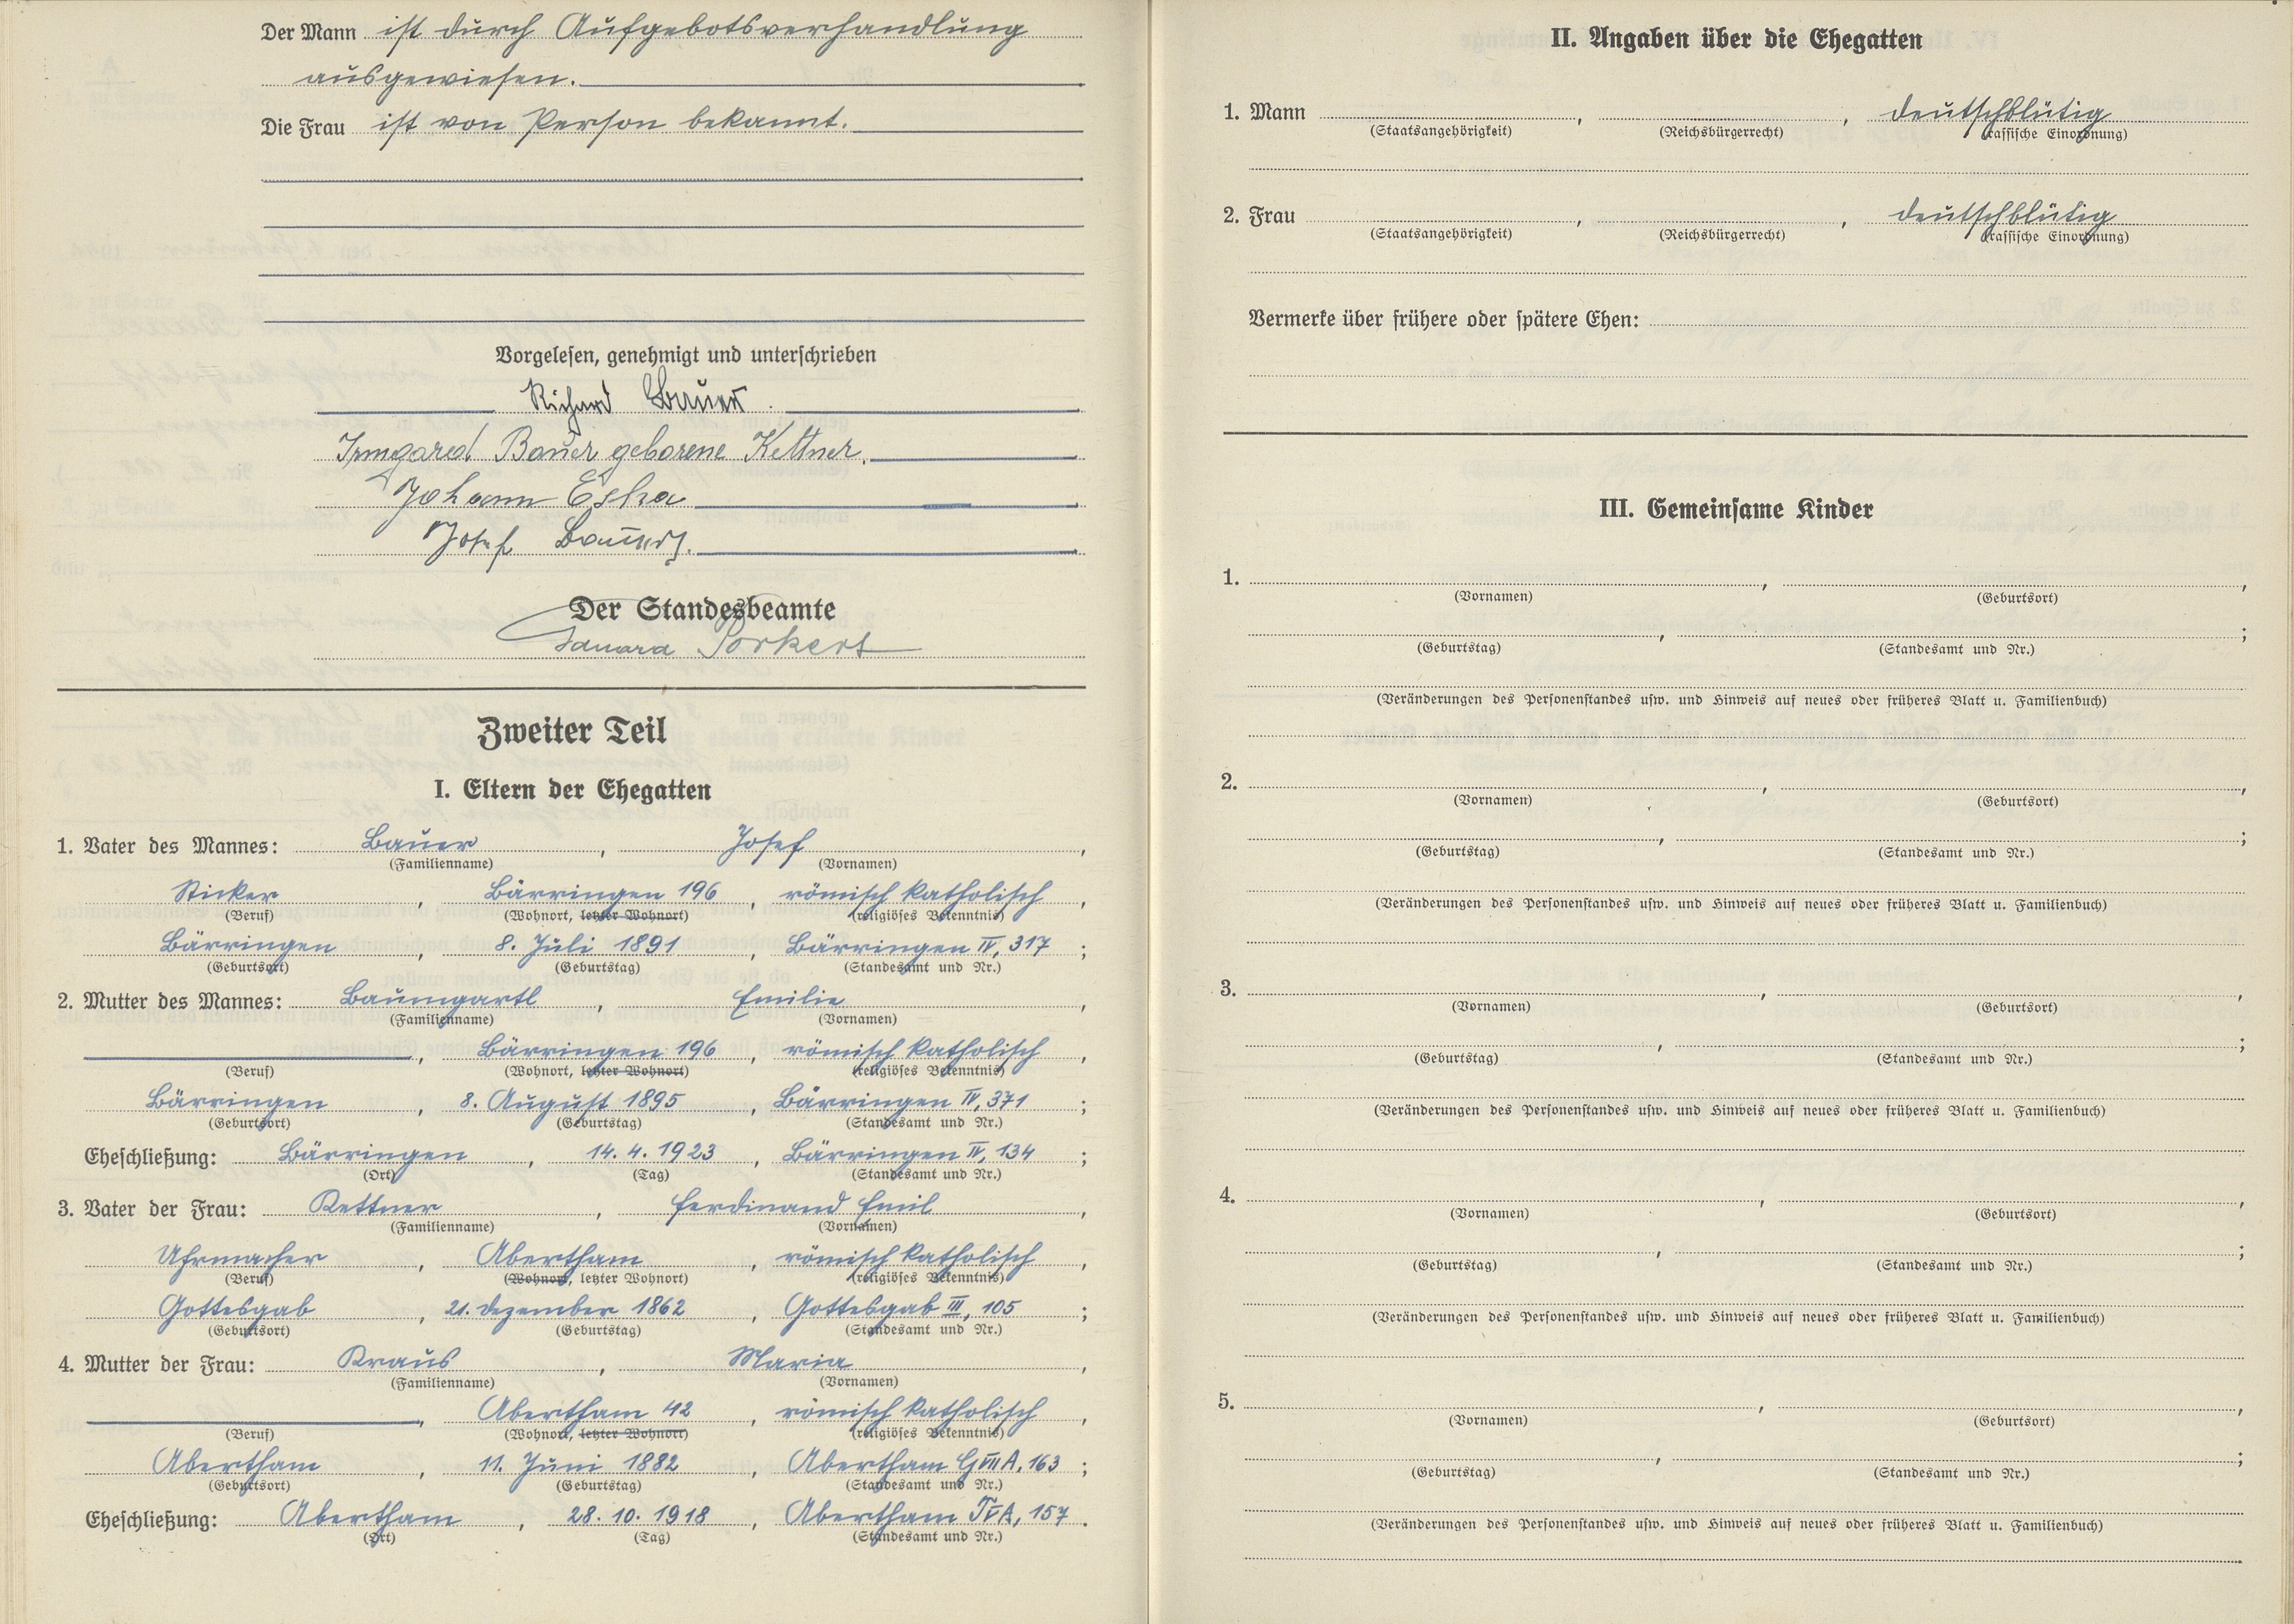 Der Mann ist durch Aufgebotsverhandlung
ausgewiesen.
Die Frau ist von Person bekannt.
Vorgelesen, genehmigt und unterschrieben
Richard Bauer.
Irmgard Bauer geborene Kettner.
Johann
Josef
Der Standesbeamte
Porkert
Zweiter Teil
I. Eltern der Ehegatten
1. Vater des Mannes: Bauer, Josef,
(Familienname) (Vornamen)
Sticker, Bärringen 196, römisch katholisch,
(Beruf) (Wohnort, letzter Wohnort) (religiöses Bekenntnis)
Bärringen, 8. Juli 1891, Bärringen IV, 317;
(Geburtsort) (Geburtstag) (Standesamt und Nr.)
2. Mutter des Mannes: Baumgartl, Emilie,
(Familienname) (Vornamen)
, Bärringen 196, römisch katholisch,
(Beruf) (Wohnort, letzter Wohnort) (religiöses Bekenntnis)
Bärringen, 8. August 1895, Bärringen IV, 371;
(Geburtsort) (Geburtstag) (Standesamt und Nr.)
Eheschließung: Bärringen, 14. 4. 1923, Bärringen IV, 134;
(Ort) (Tag) (Standesamt und Nr.)
3. Vater der Frau: Kettner, Ferdinand Emil,
(Familienname) (Vornamen)
Uhrmacher, Abertham, römisch katholisch,
(Beruf) (Wohnort, letzter Wohnort) (religiöses Bekenntnis)
Gottesgab, 21. Dezember 1862, Gottesgab III, 105;
(Geburtsort) (Geburtstag) (Standesamt und Nr.)
4. Mutter der Frau: Kraus, Maria,
(Familienname) (Vornamen)
, Abertham 42, römisch katholisch,
(Beruf) (Wohnort, letzter Wohnort) (religiöses Bekenntnis)
Abertham, 11. Juni 1882, Abertham G VII A, 163;
(Geburtsort) (Geburtstag) (Standesamt und Nr.)
Eheschließung: Abertham, 28. 10. 1918, Abertham T V A, 157.
(Ort) (Tag) (Standesamt und Nr.)
II. Angaben über die Ehegatten
1. Mann , , deutschblütig
(Staatsangehörigkeit) (Reichsbürgerrecht) (rassische Einordnung)
2. Frau , , deutschblütig
(Staatsangehörigkeit) (Reichsbürgerrecht) (rassische Einordnung)
Vermerke über frühere oder spätere Ehen:
III. Gemeinsame Kinder
1. , ,
(Vornamen) (Geburtsort)
, ;
(Geburtstag) (Standesamt und Nr.)
(Veränderungen des Personenstandes usw. und Hinweis auf neues oder früheres Blatt u. Familienbuch)
2. , ,
(Vornamen) (Geburtsort)
, ;
(Geburtstag) (Standesamt und Nr.)
(Veränderungen des Personenstandes usw. und Hinweis auf neues oder früheres Blatt u. Familienbuch)
3. , ,
(Vornamen) (Geburtsort)
, ;
(Geburtstag) (Standesamt und Nr.)
(Veränderungen des Personenstandes usw. und Hinweis auf neues oder früheres Blatt u. Familienbuch)
4. , ,
(Vornamen) (Geburtsort)
, ;
(Geburtstag) (Standesamt und Nr.)
(Veränderungen des Personenstandes usw. und Hinweis auf neues oder früheres Blatt u. Familienbuch)
5. , ,
(Vornamen) (Geburtsort)
, ;
(Geburtstag) (Standesamt und Nr.)
(Veränderungen des Personenstandes usw. und Hinweis auf neues oder früheres Blatt u. Familienbuch)